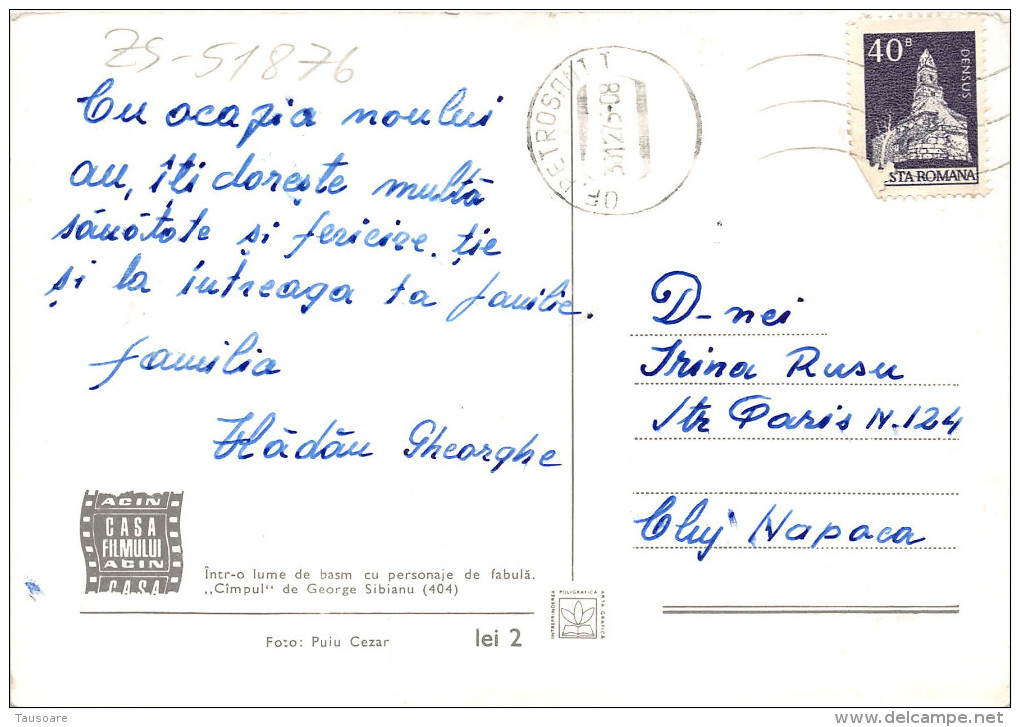 ZS-51876
Cu ocazia noului
an, îți dorește multă
sănătate și fericire, ție
și la întreaga ta familie.
familia
Hădău Gheorghe
ACIN
CASA
FILMULUI
ACIN
CASA
Într-o lume de basm cu personaje de fabulă.
„Cîmpul" de George Sibianu (404)
Foto: Puiu Cezar
lei 2
INTREPRINDEREA
POLIGRAFICA
ARTA GRAFICA
OF. PETROSANI 1
40 B
DENSUS
STA ROMANA
D-nei
Irina Rusu
Str Paris N.124
Cluj Napoca
Tausoare
delcampe.net